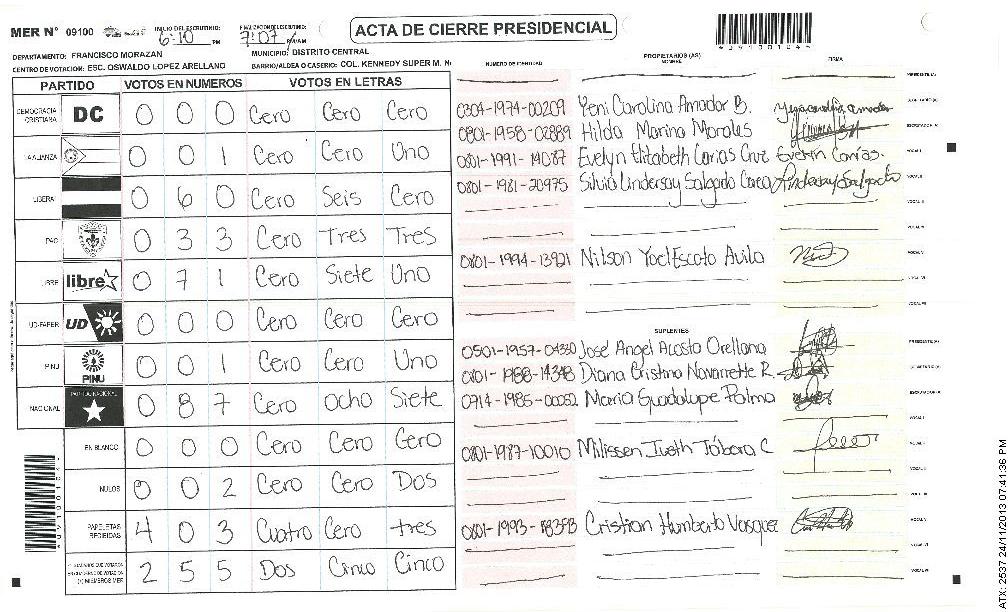 MER Nº 09100 INICIO DEL ESCRUTINIO: 6:10 PM FINALIZACION ESCRUTINIO: 7:07 PM/AM ACTA DE CIERRE PRESIDENCIAL
DEPARTAMENTO: FRANCISCO MORAZAN MUNICIPIO: DISTRITO CENTRAL
CENTRO DE VOTACION: ESC. OSWALDO LOPEZ ARELLANO BARRIO/ALDEA O CASERIO: COL. KENNEDY SUPER M. N
PARTIDO VOTOS EN NUMEROS VOTOS EN LETRAS
DEMOCRACIA CRISTIANA DC 0 0 0 Cero Cero Cero
LA ALIANZA 0 0 1 Cero Cero Uno
LIBERAL 0 6 0 Cero Seis Cero
PAC 0 3 3 Cero Tres Tres
LIBRE libre 0 7 1 Cero Siete Uno
UD-FAPER UD 0 0 0 Cero Cero Cero
PINU PINU 0 0 1 Cero Cero Uno
NACIONAL PARTIDO NACIONAL 0 8 7 Cero ocho Siete
EN BLANCO 0 0 0 Cero Cero Cero
NULOS 0 0 2 Cero Cero Dos
PAPELETAS RECIBIDAS 4 0 3 Cuatro Cero tres
2 5 5 Dos Cinco Cinco
NUMERO DE IDENTIDAD PROPIETARIOS (AS) NOMBRE FIRMA
PRESIDENTE (A)
0304-1974-00209 Yeni Carolina Amador B. SECRETARIO (A)
0801-1958-02889 Hilda Marina Morales ESCRUTADOR (A)
0801-1991-19087 Evelyn Elizabeth Carias Cruz Evelin Carías. VOCAL I
0801-1981-20975 Silvia Lindersay Salgado Lindersay Salgado VOCAL II
VOCAL III
VOCAL IV
0801-1994-13921 Nilson Yoel Escoto Avila VOCAL V
VOCAL VI
VOCAL VII
SUPLENTES
0501-1957-04330 José Angel Acosta Orellana PRESIDENTE (A)
0801-1988-14348 Diana Cristina Navarrette R. SECRETARIO (A)
0714-1985-00052 Maria Guadalupe Palma ESCRUTADOR (A)
VOCAL I
0801-1987-10010 Milissen Iveth Tábora C VOCAL II
VOCAL III
VOCAL IV
0801-1993-18393 Cristian Humberto Vasquez VOCAL V
VOCAL VI
VOCAL VII
ATX: 2537 24/11/2013 07:41:36 PM